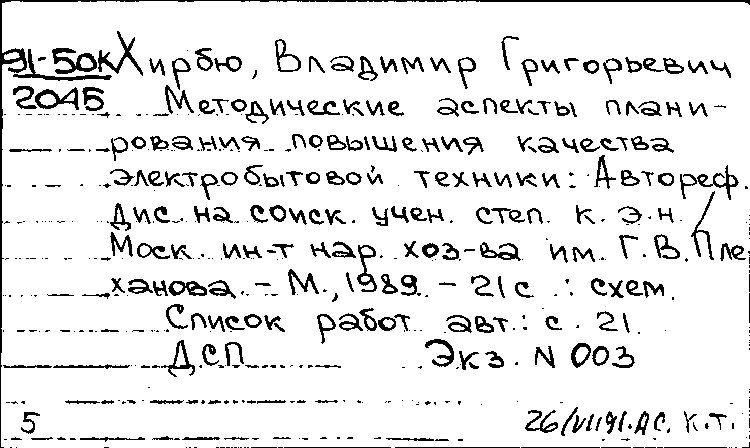 91-50К Хирбю, Владимир Григорьевич
2045 Методические аспекты плани-
рования повышения качества
электробытовой техники: Автореф.
Дис. на соиск. учен. степ. к. э. н. /
Моск. ин-т нар. хоз-ва им. Г. В. Пле
ханова. - М., 1989 - 21 с .: схем.
Список работ авт.: с. 21.
ДСП Экз. N 003
5 26/VI 91. АС. К. Т.